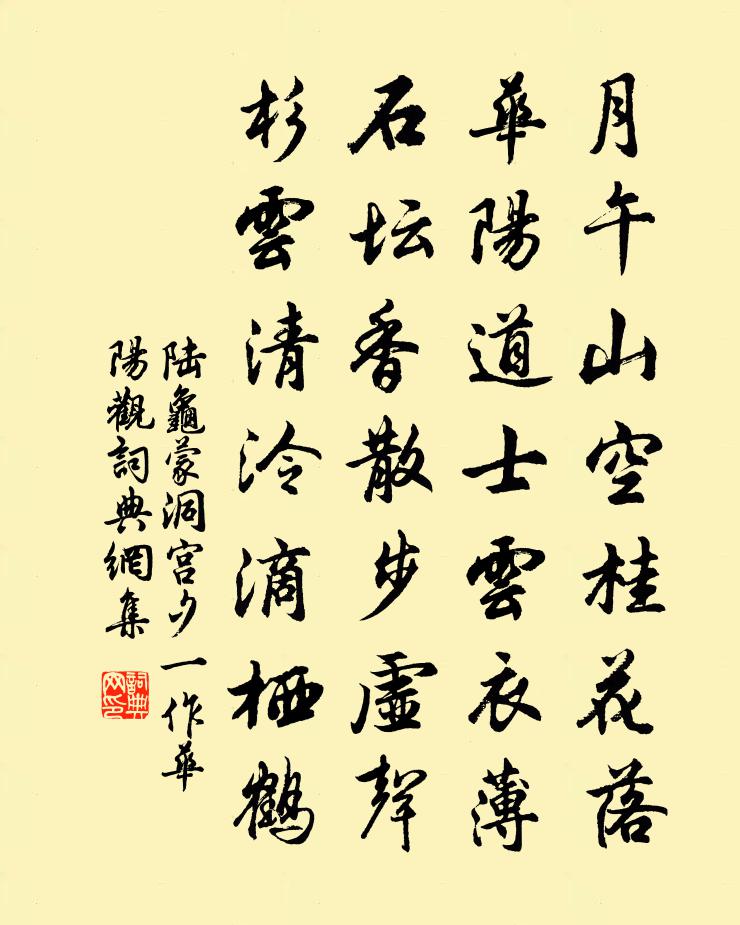 月午山空桂花落
華陽道士雲衣薄
石坛香散步虛聲
杉雲清泠滴栖鶴
陆龜蒙洞宫夕一作華
陽觀詞典網集
詞典網印